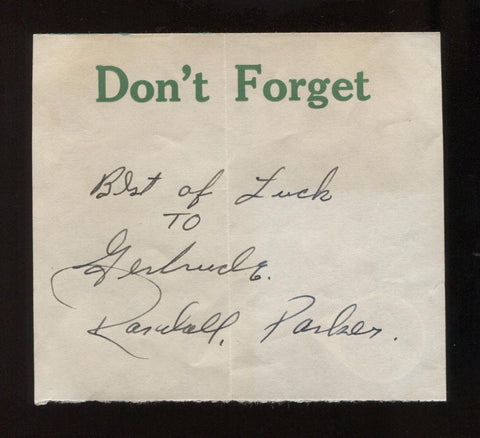 Don't Forget
Best of Luck
TO
Gertrude.
Randall, Parker.